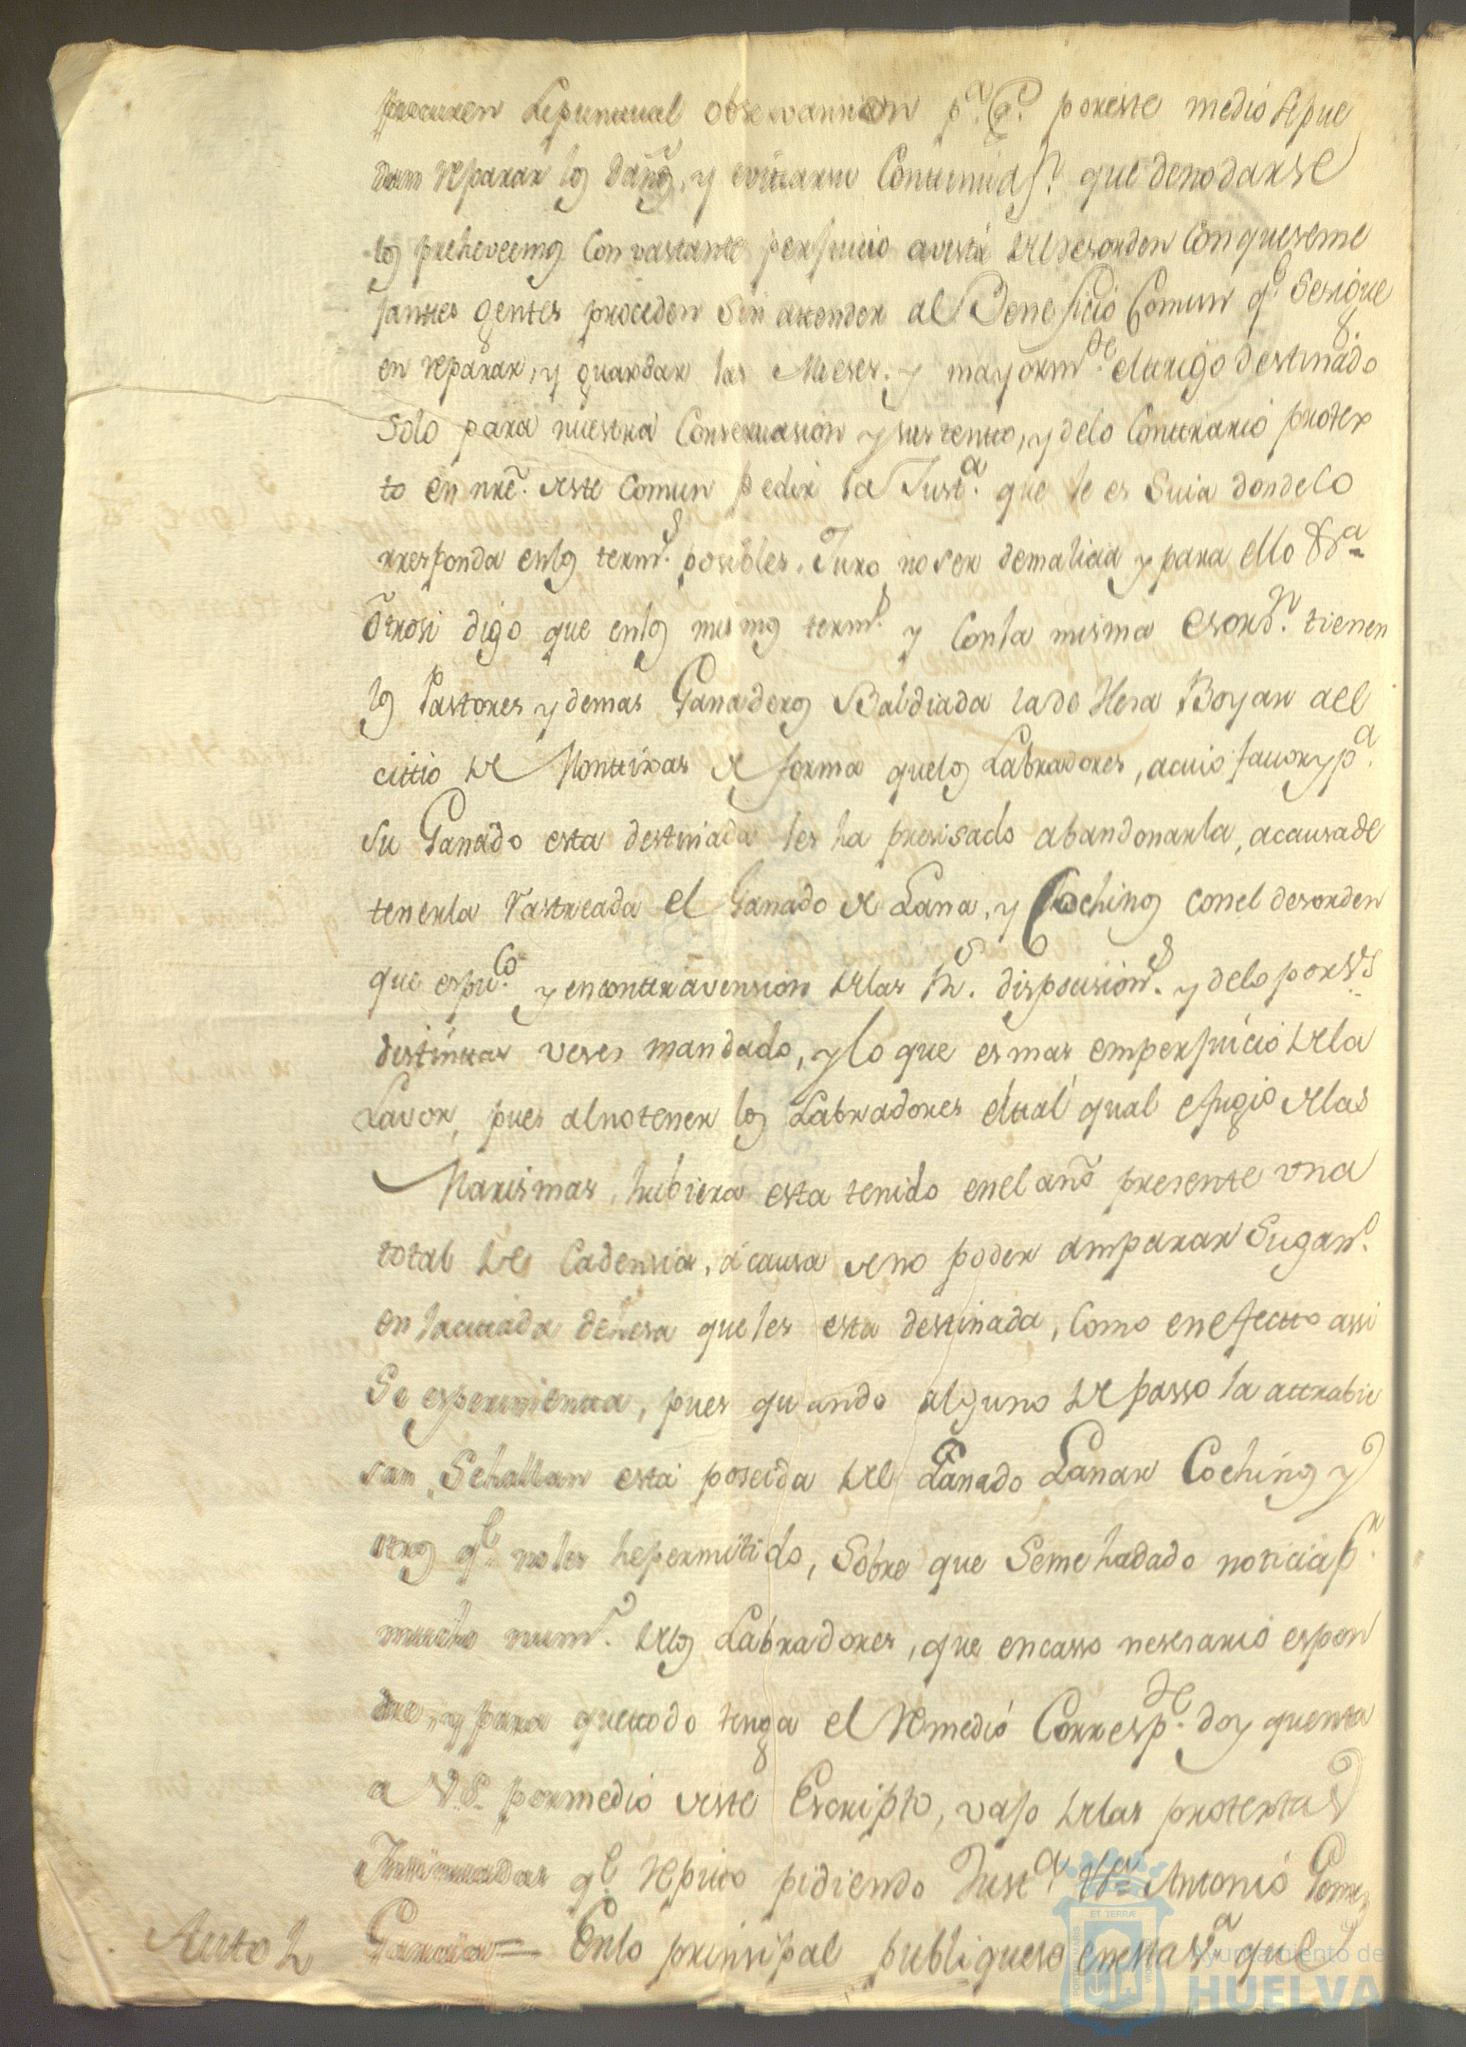 procuren su puntual observansion p.ª q.e por este medio se pue
dan reparar los daños, y evitarsen Contiendas. que de no darse
los preheveemos Con vastante perjuicio a vista del desorden Con que seme
jantes gentes proceden sin attender al Beneficio Comun q.e Se sigue
en reparar, y guardar las Mieses. y mayorm.te el trigo destinado
Solo para nuestra Conservasion y sustento, y de lo Contrario protex
to en nre. de este Comun pedir la Just.ª que le es Suia donde Co
rresponda en los term.s posibles. Juro no ser de malicia y para ello &ª
Otrosi digo que en los mismos term.s y Con la misma Esord.n tienen
los Pastores y demas Ganaderos Baldiada la de Hesa Boyar del
cittio de Monttixas de forma que los Labradores, a cuio favor y p.ª
Su Ganado esta destinada les ha presisado abandonarla, a causa de
tenerla rastreada el Ganado de Lana, y Cochinos con el desorden
que es pu.co y en conttravension de las R.s disposision.s y de lo por V.S.
distinttas veses mandado, y lo que es mas en perjuicio de la
Lavor, pues al no tener los Labradores el tal qual efugio de las
Marismas, hubiera esta tenido en el año presente una
total de Cadensia, a causa de no poder amparar Su gan.o
en la cittada dehesa que les esta destinada, Como en efectto assi
Se esperimentta, pues quando alguno de passo la attrabie
san, Se hallan esta poseida del Ganado Lanar Cochinos y
otros q.e no les he permitido, Sobre que Se me ha dado noticia p.r
mucho num.o de los Labradores, que en casso nesesario espon
dre, y para que ttodo tenga el Remedio Corresp.te doy quenta
a V.S. por medio de este Escripto, vajo de las protextas
Insinuadas q.e repitto pidiendo Just.ª &ª Antonio Gomez
Auto 2 Garcia = En lo prinsipal publiquese en esta v.ª que
Ayuntamiento de
HUELVA